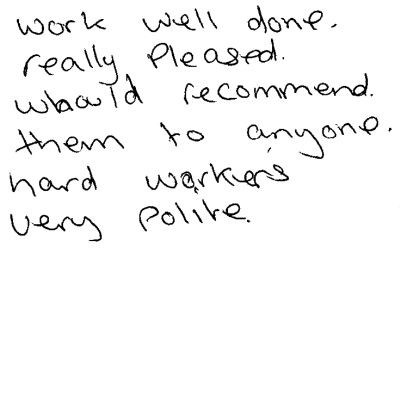 work well done.
really Pleased.
whould recommend.
them to anyone.
hard workers
very Polite.